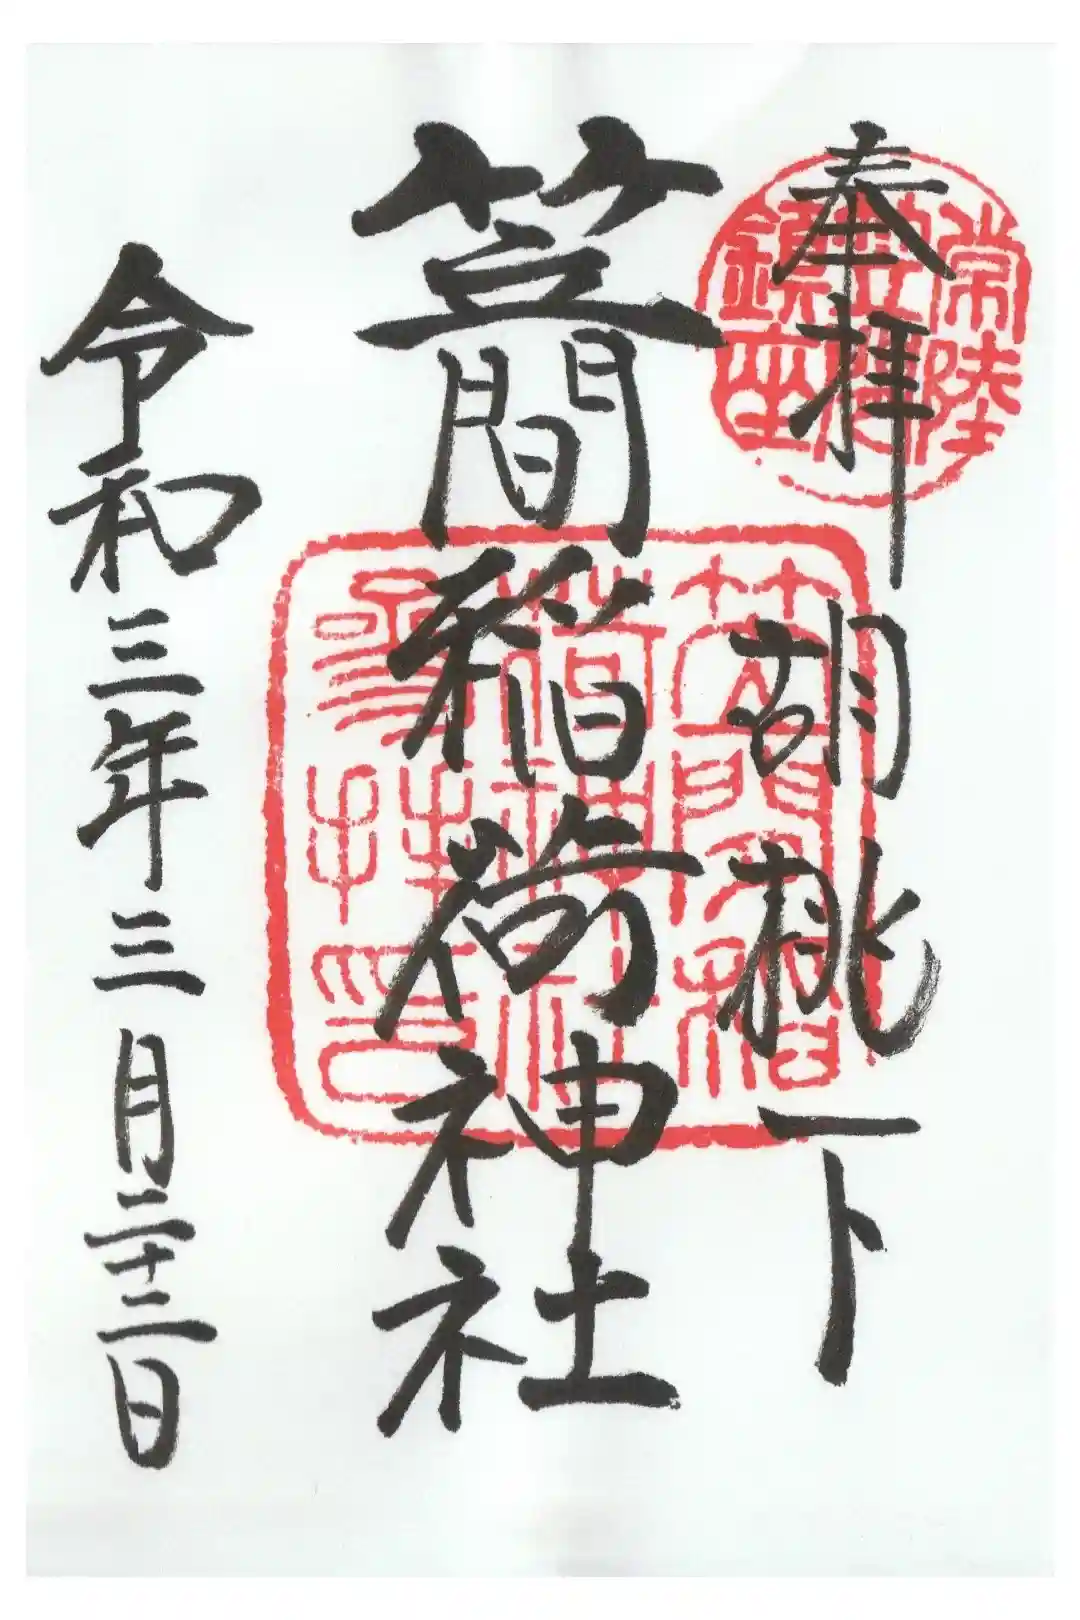 奉拝 胡桃下
笠間稲荷神社
令和三年三月二十二日
常陸
鎮座
笠間稲
荷神社
参拝印